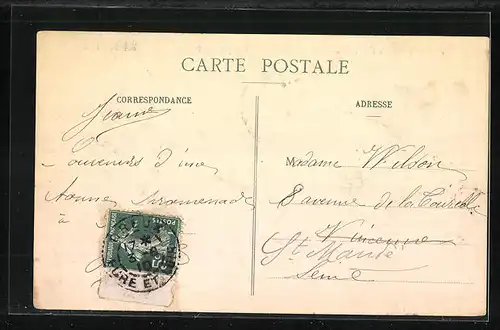 CARTE POSTALE
CORRESPONDANCE
ADRESSE
Jeanne
Souvenirs d'une
bonne promenade
à
Madame Wilson
8 avenue de la Tourelle
Vincennes
St Mandé
Seine
POSTES